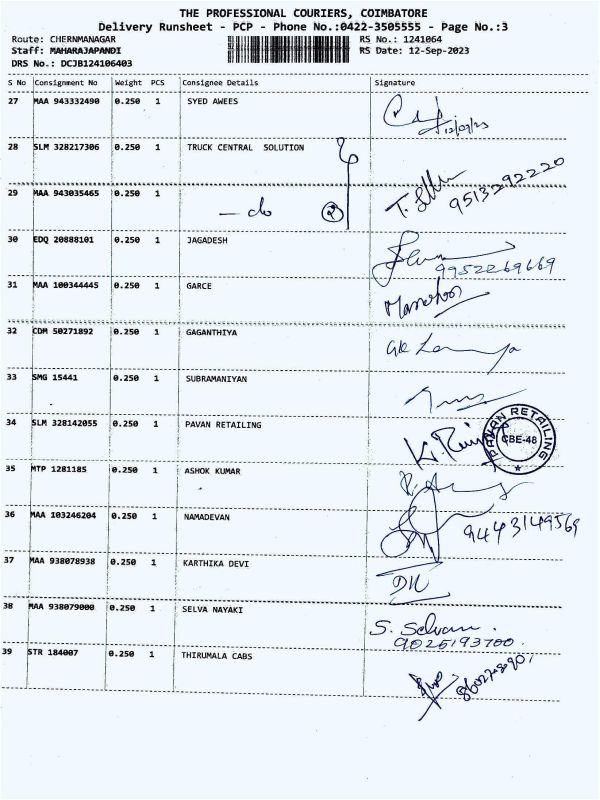 THE PROFESSIONAL COURIERS, COIMBATORE
Delivery Runsheet - PCP - Phone No.:0422-3505555 - Page No.:3
Route: CHERNMANAGAR RS No.: 1241064
Staff: MAHARAJAPANDI RS Date: 12-Sep-2023
DRS No.: DCJB124106403
S No Consignment No Weight PCS Consignee Details Signature
27 MAA 943332490 0.250 1 SYED AWEES
12/09/23
28 SLM 328217306 0.250 1 TRUCK CENTRAL SOLUTION
29 MAA 943035465 0.250 1
- do 2 9513292220
30 EDQ 20888101 0.250 1 JAGADESH
9952269669
31 MAA 100344445 0.250 1 GARCE
Manohar
32 CDM 50271892 0.250 1 GAGANTHIYA
33 SMG 15441 0.250 1 SUBRAMANIYAN
34 SLM 328142055 0.250 1 PAVAN RETAILING
PAVAN RETAILING
CBE-48
35 MTP 1281185 0.250 1 ASHOK KUMAR
36 MAA 103246204 0.250 1 NAMADEVAN
9443149569
37 MAA 938078938 0.250 1 KARTHIKA DEVI
38 MAA 938079000 0.250 1 SELVA NAYAKI
S. Selvam.
9026193700.
39 STR 184007 0.250 1 THIRUMALA CABS